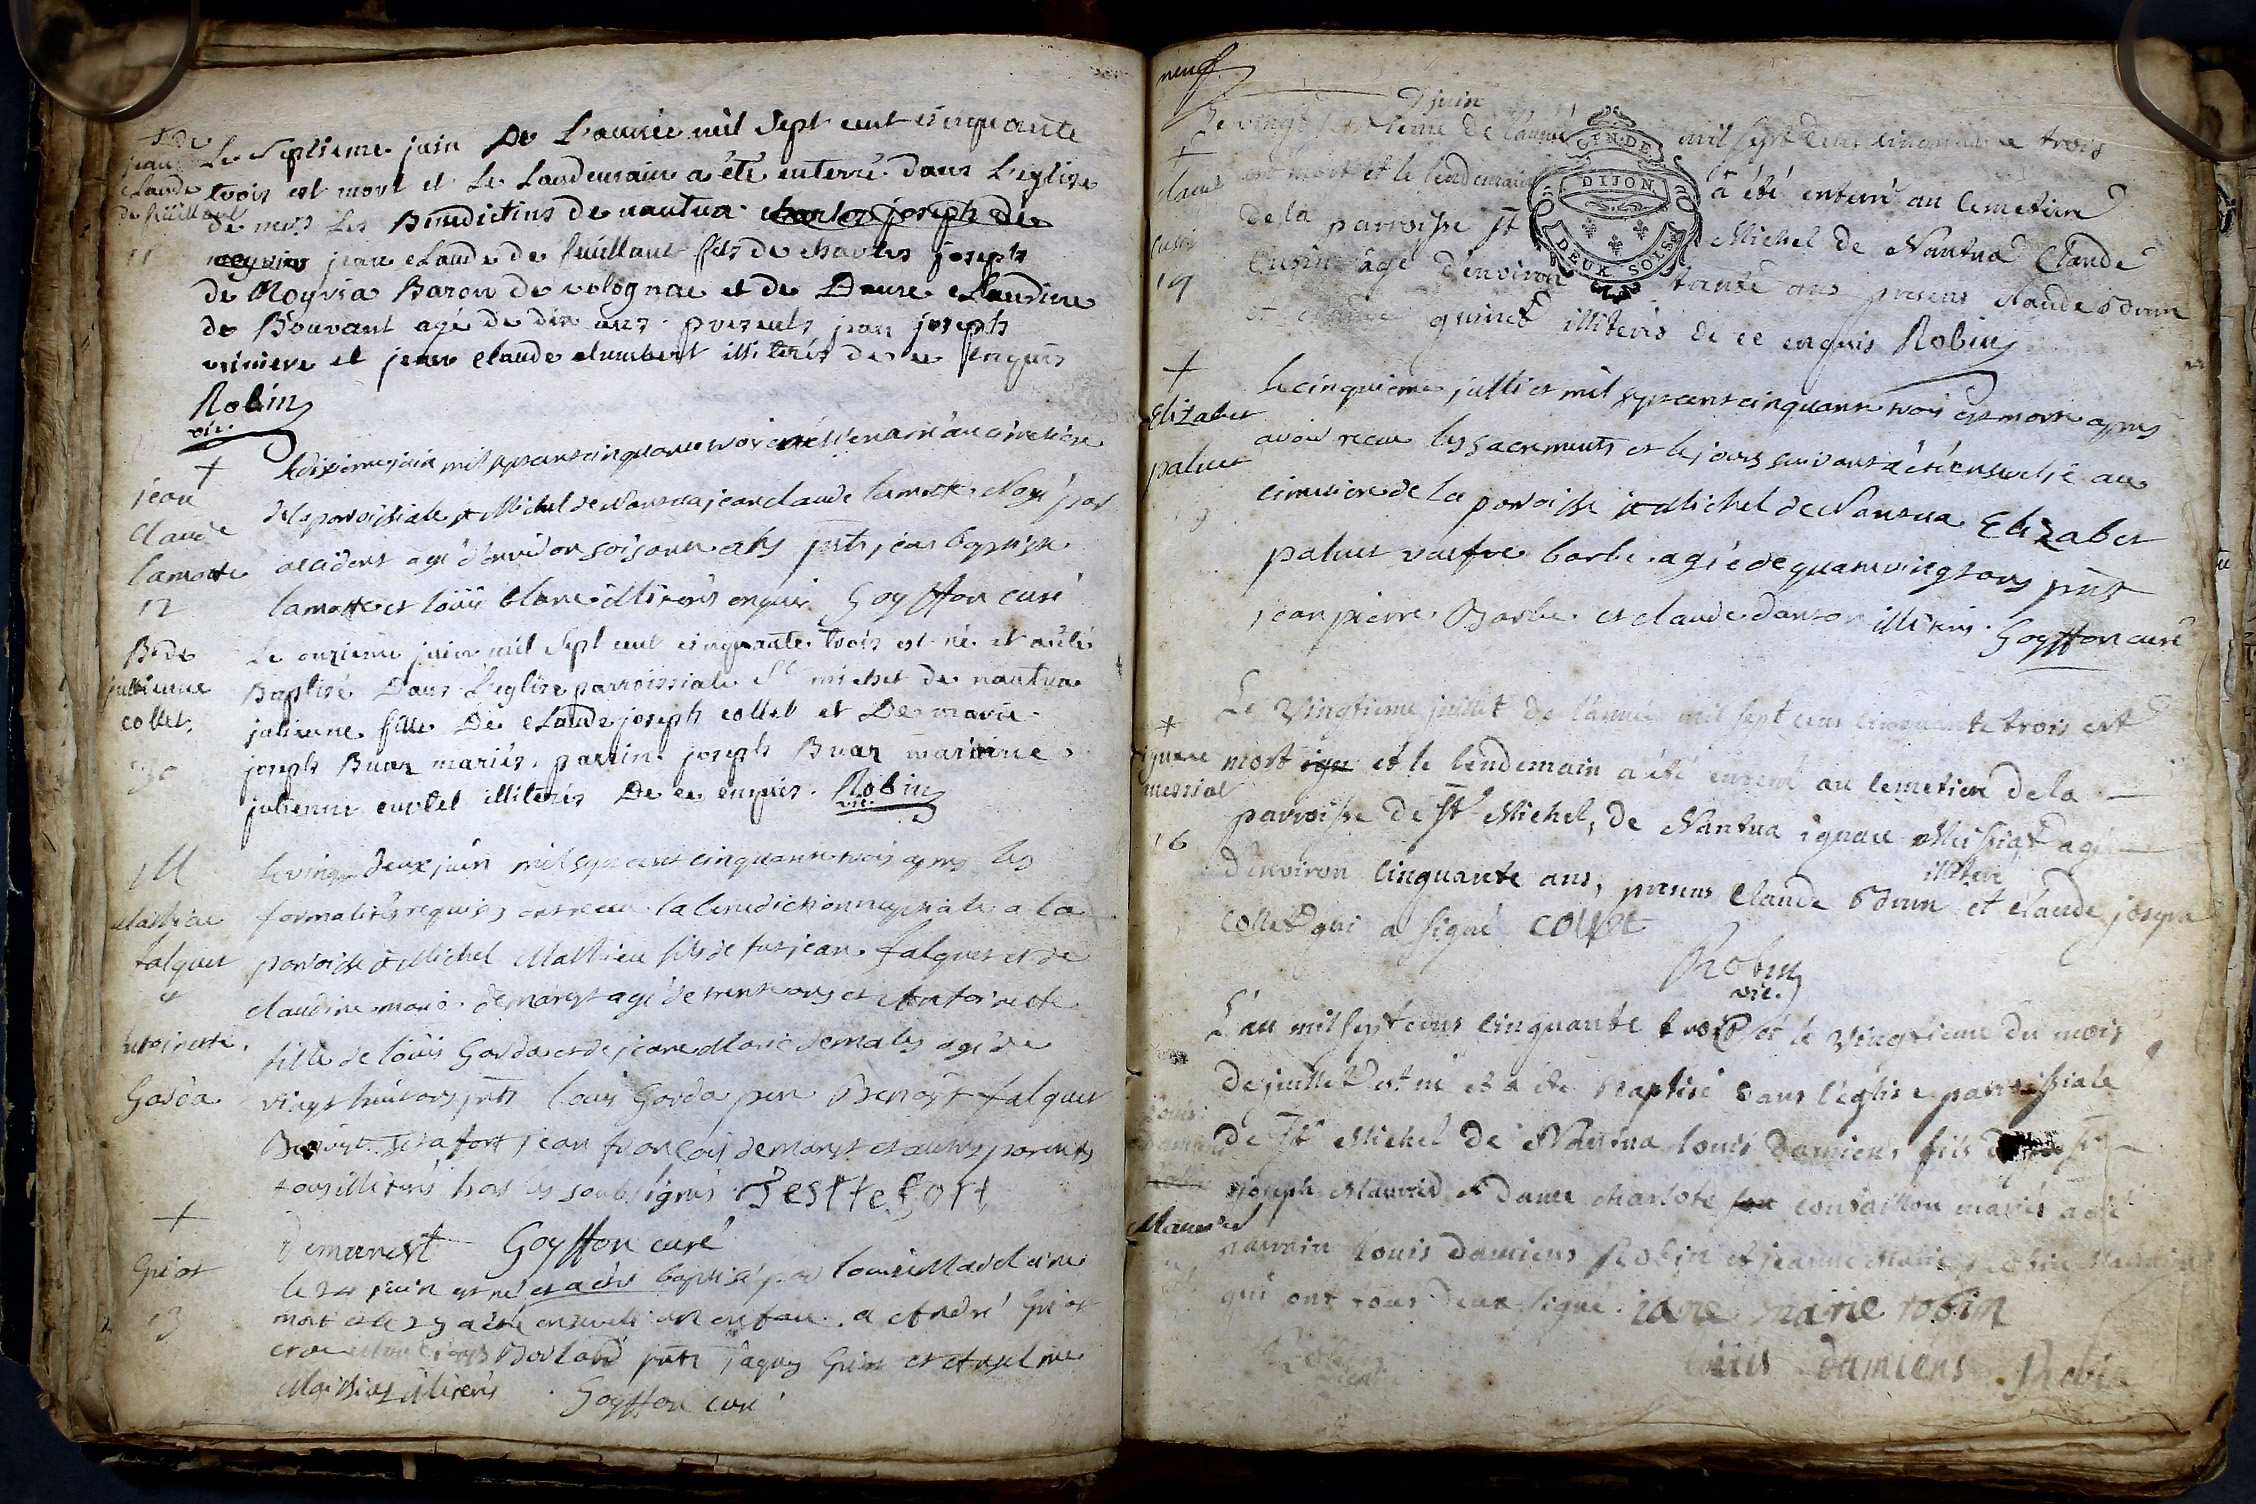 + de
jean
claude
de
11
Le Septieme juin De L'année mil Sept cent cinquante
trois est mort et Le Landemain a été enterré dans L'eglise
de mrs Les Benedictins de nantua charles joseph de
moyria jean claude de fuillant fils de charles joseph
de Moyria Baron de volognac et de Dame claudine
de Bouvant agé de dix ans presents jean joseph
et jean claude humbert illiterés de ce enquis
Robin
vic.
+
jean
claude
lamotte
12
Le dixieme juin mil sept cent cinquante trois a été enterré au cimetiere
de la paroissiale st Michel de Nantua jean claude lamotte Noyé par
accident agé d'environ soisante ans pnts jean baptiste
lamotte et loüis blanc illiterés enquis Goyffon curé
B. de
jullienne
collet.
30
Le onzieme juin mil Sept cent cinquante trois est né et a été
Baptisé Dans L'eglise parroissiale St michel de nantua
julienne fille De claude joseph collet et De marie
joseph Buar mariés. parrin joseph Buar marinne
julienne curtet illiterés De ce enquis. Robin
vic.
M
Mathieu
falquet
et
antoinette
Gorda
Le vingt deux juin mil sept cent cinquante trois apres les
formalités requises ont receu la benediction nuptiale a la
paroisse st Michel Mathieu fils de fut jean falquet et de
claudine marie demarest agé de trente ans et Antoinette
fille de loüis Gorda et de jeane Marie agé de
vingt huit ans pnts louis Gorda pere Benoist falquet
Benoist Testafort jean francois demarest et autres parents
tous illiterés hors les soubsignés Testtefort
Demarest Goyffon curé
+
Griot
13
le 24 juin est né et a été baptisé par louise Madelaine
mort et le 25 a été enseveli un enfant a André Griot
et a pnts jaques Griot et Anselme
illiterés Goyffon curé
neuf
juin
+
claude
cusin
19
Le vingt septieme de l'année mil sept cens cinquante trois
est mort et le lendemain a été enterré au cemetiere
de la parroisse St Michel de Nantua Claude
Cusin agé d'environ tante ans presens claude odrun
et claude guinet illiterés de ce enquis Robin
GEN. DE DIJON
DEUX SOLS
+
Elizabet
paluet
Le cinquieme juillet mil sept cent cinquante trois est morte apres
avoir receu les sacrements et le jours suivant a été ensevelie au
cimetiere de la paroisse st Michel de Nantua Elizabet
paluet vuefve barbe agée de quatre vingt ans pnts
jean pierre Barbe et claude danton illiterés. Goyffon curé
+
ignace
messiat
16
Le Vingtieme juillet de l'année mil sept cens cinquante trois est
mort ign et le lendemain a été enterré au cemetiere de la
parroisse de St Michel, de Nantua ignace Messiat agé
d'environ cinquante ans, presens Claude odrun illiteré et claude joseph
collet qui a signé collet
Robin
vic.
Louis
Damiens
Mauvrel
L'an mil sept cens cinquante trois et le vingtieme du mois
de juillet est né et a été Baptisé dans l'église parroissiale
de St Michel de Nantua louis Damiens fils de sr
joseph Mauvrel et dame charlote mariés
parrain louis damiens Robin et jeanne Marie Robin Marraine
qui ont tous deux signé. iane marie robin
Robin louis damiens Robin